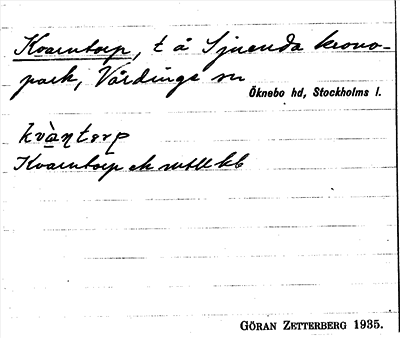 Kvarntorp, t å Sjuenda krono-
park, Vårdinge sn
Öknebo hd, Stockholms l.
kvàṇtɷrp
Kvarntorp ek
GÖRAN ZETTERBERG 1935.